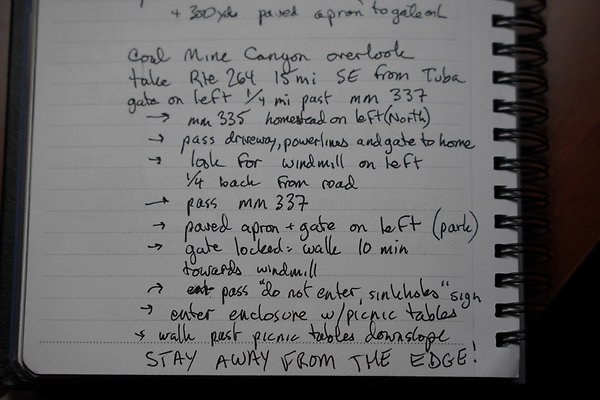 + 350 yds paved apron to gate on L
Coal Mine Canyon overlook
take Rte 264 15 mi SE from Tuba
gate on left 1/4 mi past mm 337
→ mm 335 homestead on left (North)
→ pass driveway, powerlines and gate to home
→ look for windmill on left
1/4 back from road
→ pass mm 337
→ paved apron + gate on left (park)
→ gate locked: walk 10 min
towards windmill
→ pass "do not enter, sinkholes" sign
→ enter enclosure w/picnic tables
→ walk past picnic tables downslope
STAY AWAY FROM THE EDGE!